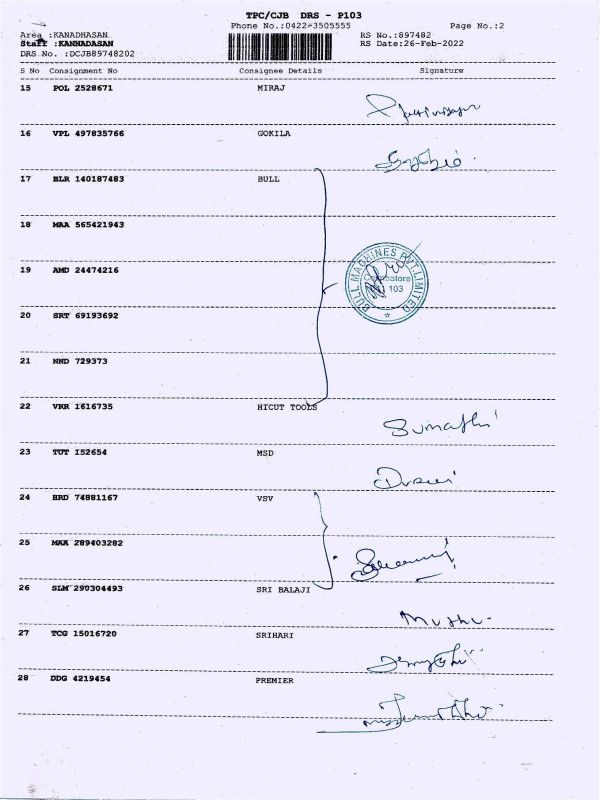 TPC/CJB DRS - P103
Phone No.:0422-3505555 Page No.:2
Area :KANADHASAN RS No.:897482
Staff :KANNADASAN RS Date:26-Feb-2022
DRS No. :DCJB89748202
S No Consignment No Consignee Details Signature
15 POL 2528671 MIRAJ
16 VPL 497835766 GOKILA
17 BLR 140187483 BULL
18 MAA 565421943
19 AMD 24474216
BULL MACHINES PVT. LIMITED
Coimbatore
103
20 SRT 69193692
21 NND 729373
22 VRR 1616735 HICUT TOOLS
Sumathi
23 TUT 152654 MSD
24 HRD 74881167 VSV
25 MAX 289403282
26 SLM 290304493 SRI BALAJI
Muthu
27 TCG 15016720 SRIHARI
28 DDG 4219454 PREMIER